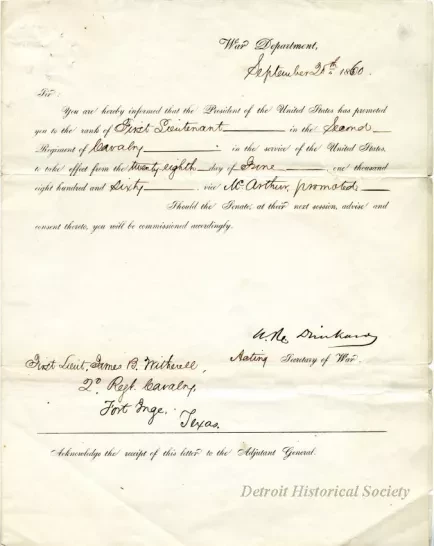 War Department,
September 28th. 1860.
Sir:
You are hereby informed that the President of the United States has promoted
you to the rank of First Lieutenant in the Second
Regiment of Cavalry : in the service of the United States,
to take effect from the twenty eighth day of June , one thousand
eight hundred and Sixty , vice McArthur, promoted
Should the Senate, at their next session, advise and
consent thereto, you will be commissioned accordingly.
W. R. Drinkard
Acting Secretary of War.
First Lieut. James B. Witherell,
2d Regt. Cavalry,
Fort Inge.
Texas.
Acknowledge the receipt of this letter to the Adjutant General.
Detroit Historical Society